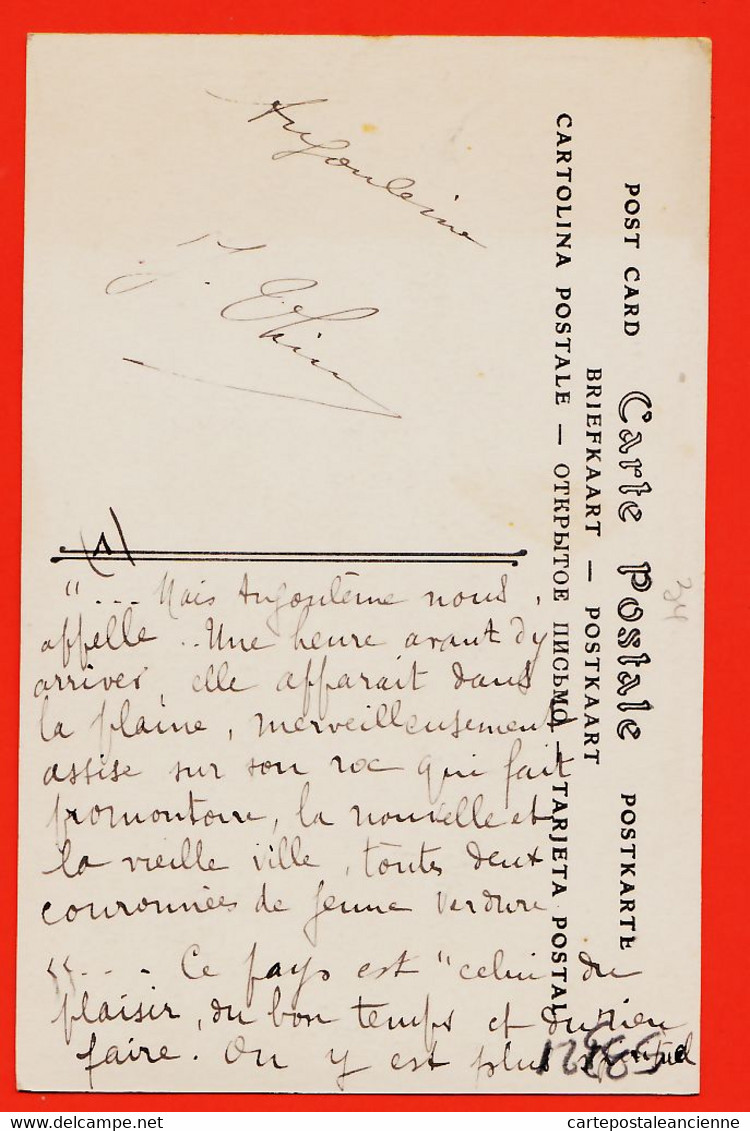 Angoulême
(1)
"... Mais Angoulême nous
appelle .. Une heure avant d'y
arriver, elle apparait dans
la plaine, merveilleusement
assise sur son roc qui fait
promontoire, la nouvelle et
la vieille ville, toutes deux
couronnées de jeune verdure
"... Ce pays est "celui du
plaisir, du bon temps et du rien
faire. On y est plus
POST CARD Carte Postale POSTKARTE
BRIEFKAART — POSTKAART
CARTOLINA POSTALE — ОТКРЫТОЕ ПИСЬМО — TARJETA POSTAL
cartepostaleancienne